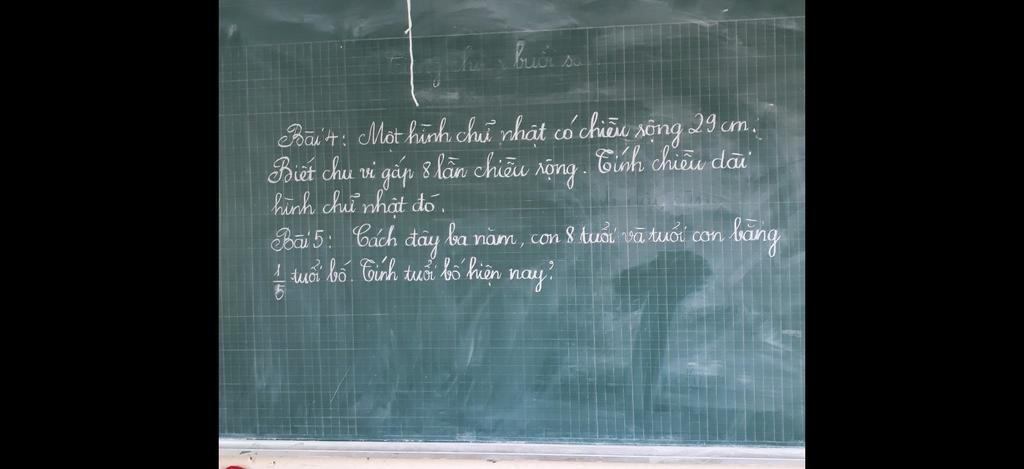 Bài 4: Một hình chữ nhật có chiều rộng 29 cm.
Biết chu vi gấp 8 lần chiều rộng. Tính chiều dài
hình chữ nhật đó.
Bài 5: Cách đây ba năm, con 8 tuổi và tuổi con bằng
1/5 tuổi bố. Tính tuổi bố hiện nay?